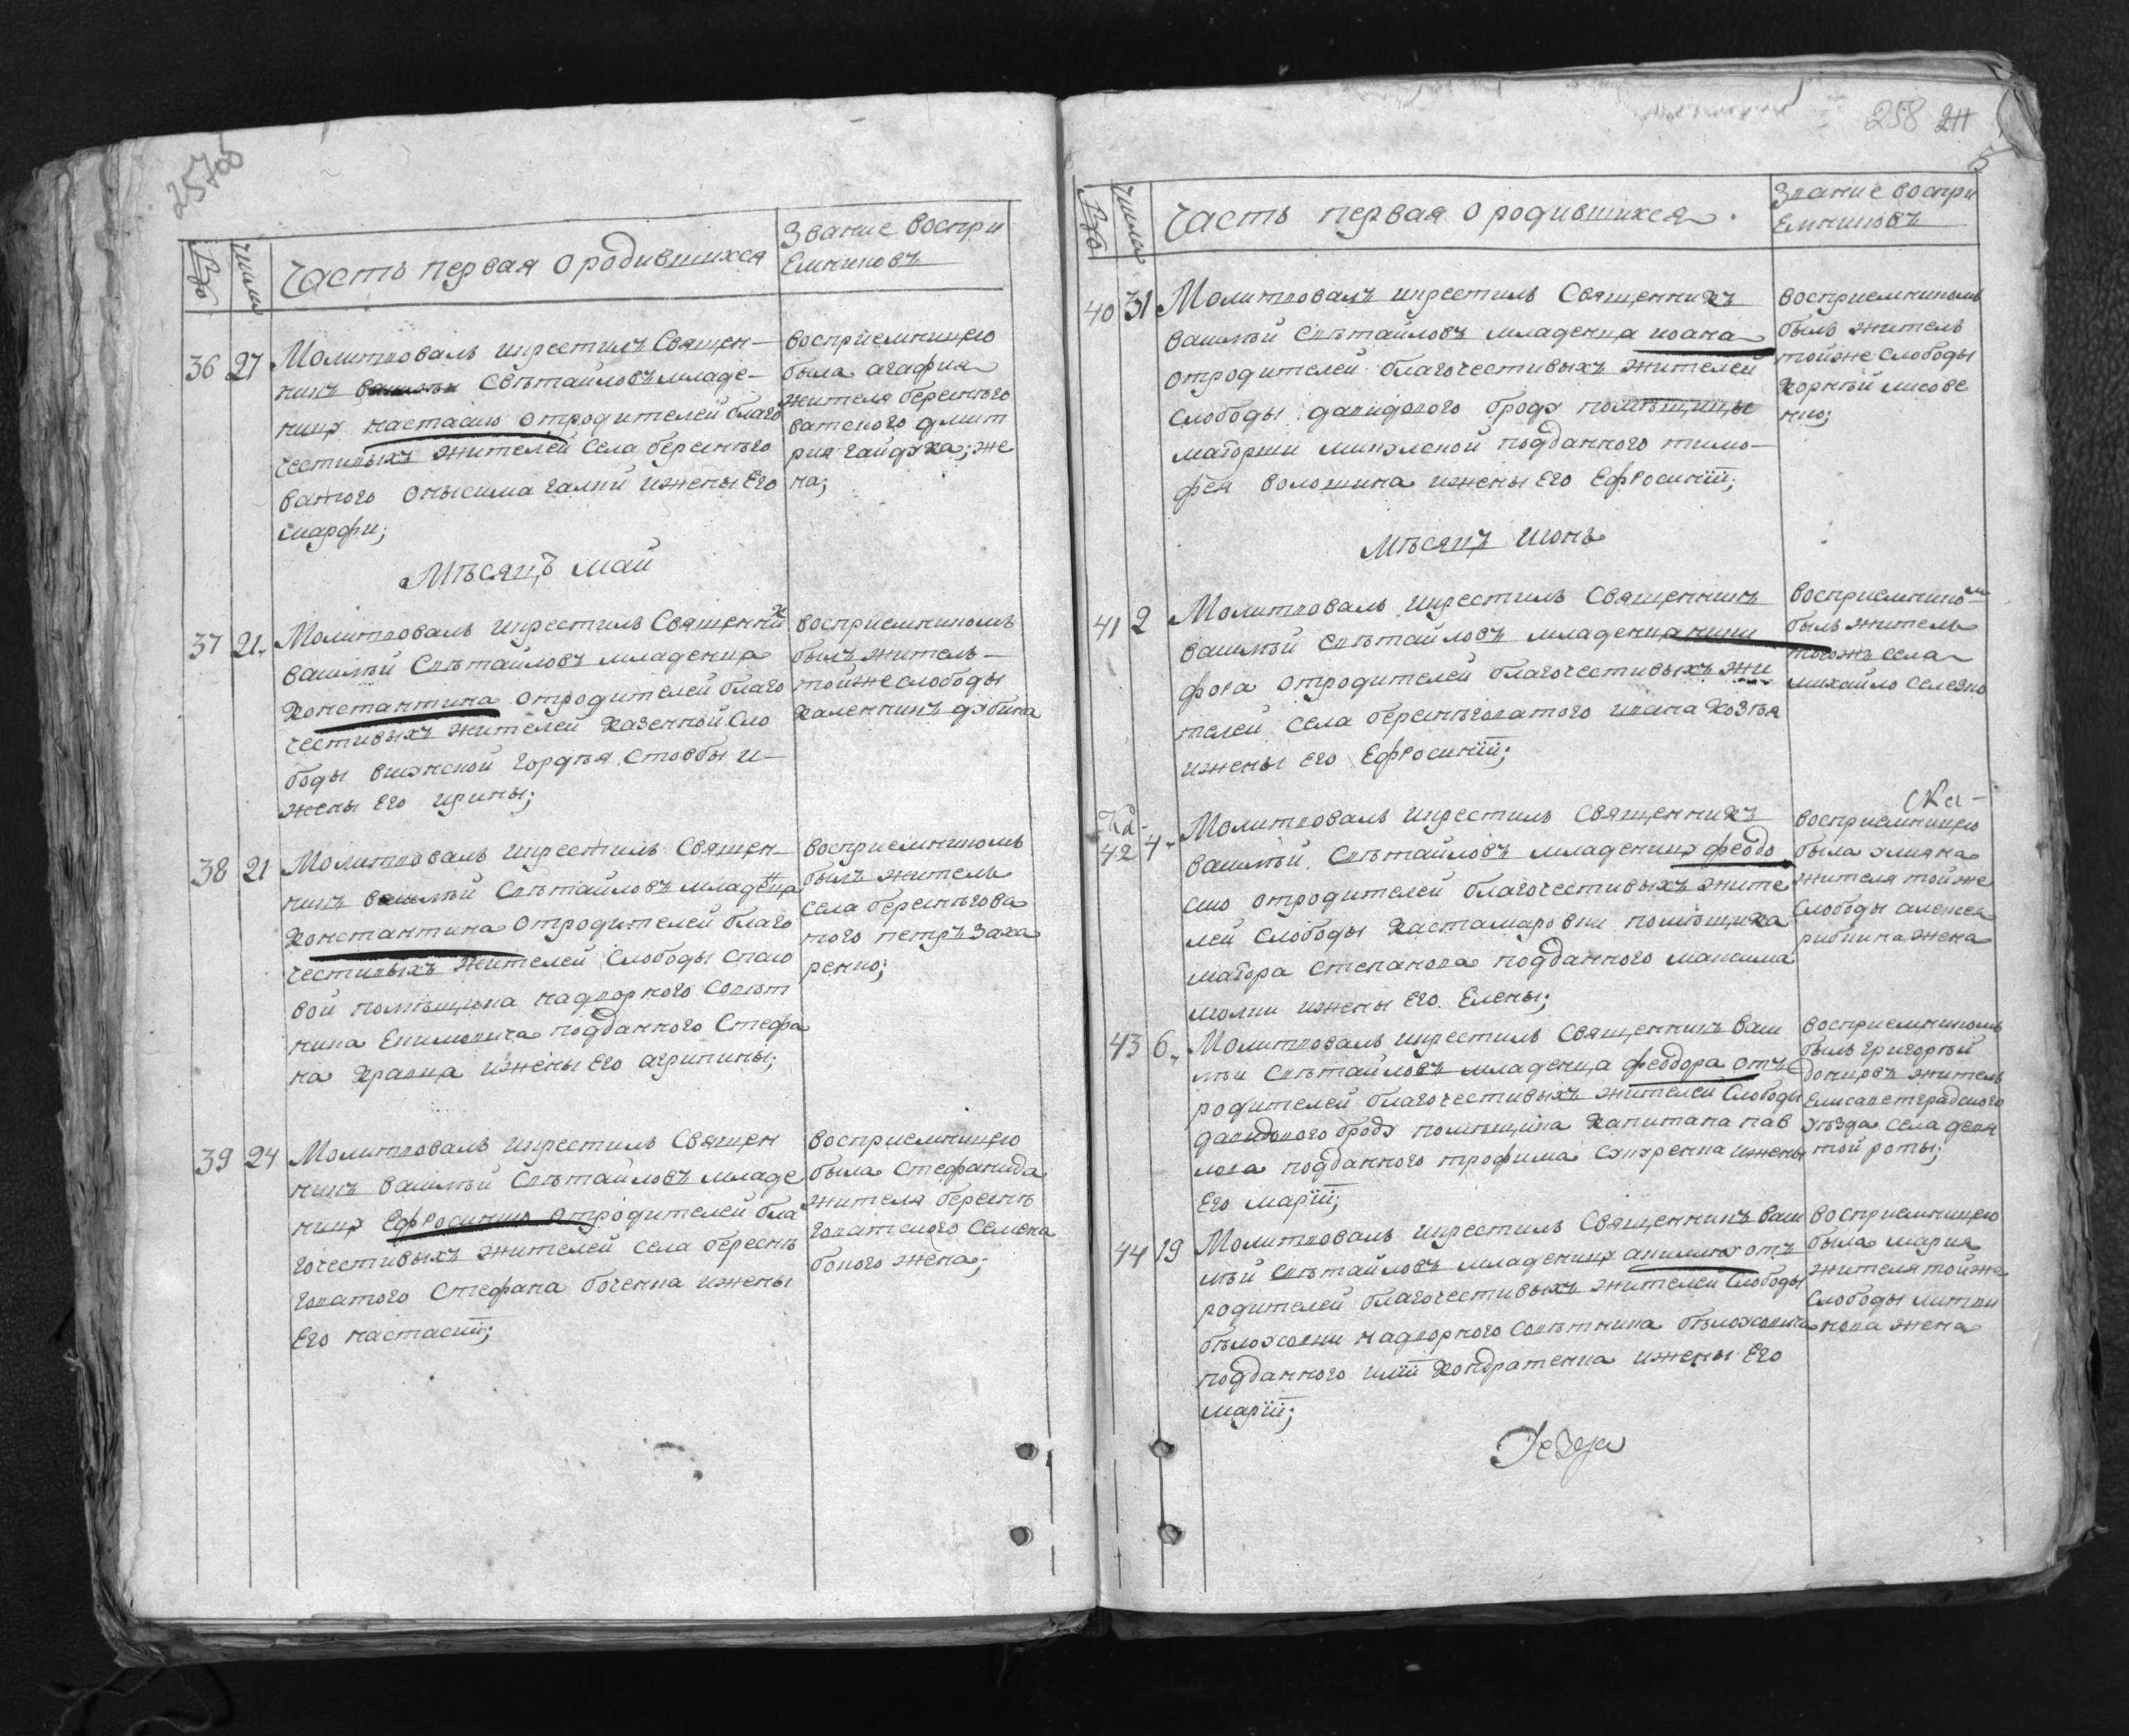 257об
Число
Часть первая о родившихся
Звание воспри
емниковъ
36 27 Молитвовалъ икрестилъ Священ-
никъ Свѣтайловъ младе-
нцу настасию отродителей благо
честивыхъ жителей Села берегнѣго
ватого онысима галки ижены Его
марфи;
восприемницею
была агафия
жителя берегнѣго
ватского дмит
рия гайдука; же
на;
Мѣсяцъ май
37 21. Молитвовалъ икрестилъ Священник
василѣй Свѣтайловъ младенца
Константина отродителей благо
честивыхъ жителей Казенной Сло
боды гордѣя Стовбы и-
жены Его ирины;
восприемникомъ
былъ жителъ
тойже слободы
Каленникъ дубина
38 21 Молитвовалъ икрестилъ Священ-
никъ василѣй Свѣтайловъ младенца
Константина отродителей благо
честивыхъ жителей Слободы Спасо
вой помѣщика надворного Совѣт
ника Екимовича подданного Стефа
на Кравца ижены Его агрипины;
восприемникомъ
былъ жителъ
села берегнѣгова
того петръ Заха
ренко;
39 24 Молитвовалъ икрестилъ Священ
никъ василѣй Свѣтайловъ младе
нцу Ефросинию отродителей бла
гочестивыхъ жителей села берегнѣ
говатого Стефана боченка ижены
Его настасиï;
восприемницею
была Стефанида
жителя берегнѣ
говатского Семена
бокого жена;
258 211
5
Число
Часть первая о родившихся
Звание воспри
емниковъ
40 31 Молитвовалъ икрестилъ Священникъ
василѣй Свѣтайловъ младенца иоана
отродителей благочестивыхъ жителей
слободы давидового броду помѣщицы
маіорши подданного тимо-
фея волошина ижены Его Ефросиниï;
восприемникомъ
былъ жителъ
тойже слободы
Корнѣй лисове
нко;
Мѣсяцъ июнь
41 2 Молитвовалъ икрестилъ Священникъ
василѣй Свѣтайловъ младенца ники
фора отродителей благочестивыхъ жи
телей села берегнѣговатого ивана Козѣя
ижены Его Ефросиниï;
восприемником
былъ жителъ
тогожъ села
михайло Селезно
42 4. Молитвовалъ икрестилъ Священникъ
василѣй Свѣтайловъ младеницу феодо
сию отродителей благочестивыхъ жите
лей Слободы Кастамаровки помѣщика
маіора Степанова подданного максима
молки ижены Его Елены;
восприемницею
была улияна
жителя тойже
Слободы алексея
рибкина жена
43 6. Молитвовалъ икрестилъ Священникъ васи
лѣй Свѣтайловъ младенца феодора отъ
родителей благочестивыхъ жителей Слободы
давидового броду помѣщика Капитана пав
лова подданного трофима ижены
Его мариï;
восприемникомъ
былъ григорѣй
жителъ
Елисаветградского
уѣзда села девя
той роты;
44 19 Молитвовалъ икрестилъ Священникъ васи
лѣй Свѣтайловъ младеницу акилину отъ
родителей благочестивыхъ жителей Слободы
бѣлоусовки надворного Совѣтника бѣлоусовича
подданного илиï Кондратенка ижены Его
мариï;
восприемницею
была мария
жителя тойже
Слободы литви
нова жена